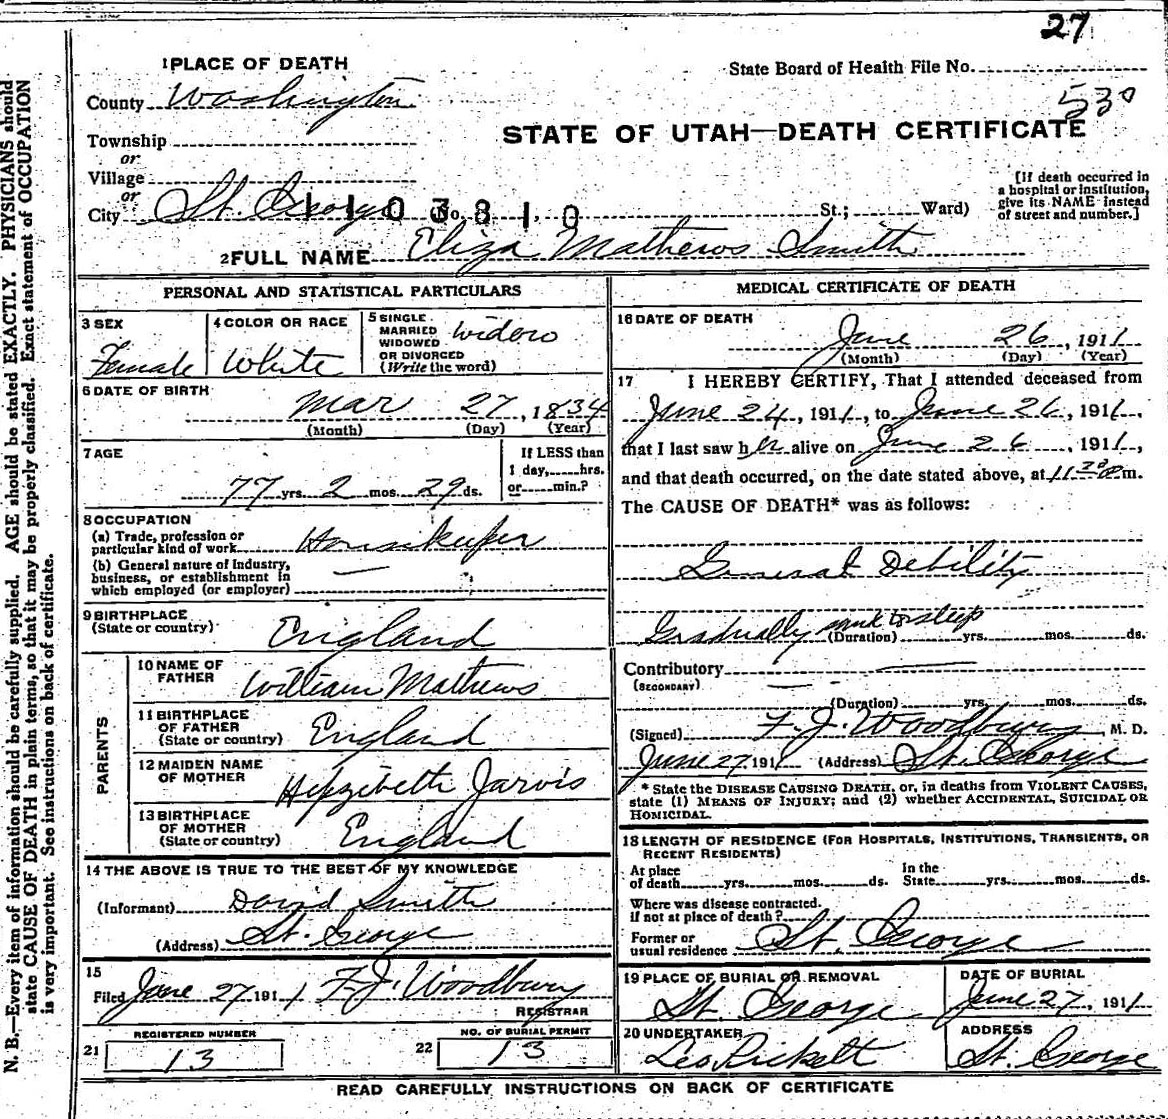 27
1 PLACE OF DEATH
State Board of Health File No.
County Washington
530
STATE OF UTAH—DEATH CERTIFICATE
Township
or
Village
or
City St. George No. St.; Ward)
1103810
[If death occurred in
a hospital or institution,
give its NAME instead
of street and number.]
2 FULL NAME Eliza Mathews Smith
PERSONAL AND STATISTICAL PARTICULARS
3 SEX
Female
4 COLOR OR RACE
White
5 SINGLE
MARRIED
WIDOWED
OR DIVORCED
(Write the word)
Widow
6 DATE OF BIRTH
Mar 27, 1834
(Month) (Day) (Year)
7 AGE
77 yrs. 2 mos. 29 ds.
If LESS than
1 day, hrs.
or min.?
8 OCCUPATION
(a) Trade, profession or
particular kind of work Housekeeper
(b) General nature of Industry,
business, or establishment in
which employed (or employer) —
9 BIRTHPLACE
(State or country) England
PARENTS
10 NAME OF
FATHER William Mathews
11 BIRTHPLACE
OF FATHER
(State or country) England
12 MAIDEN NAME
OF MOTHER Hepzibeth Jarvis
13 BIRTHPLACE
OF MOTHER
(State or country) England
14 THE ABOVE IS TRUE TO THE BEST OF MY KNOWLEDGE
(Informant) David Smith
(Address) St. George
15
Filed June 27 1911 F. J. Woodbury
REGISTRAR
REGISTERED NUMBER
21 13
NO. OF BURIAL PERMIT
22 13
MEDICAL CERTIFICATE OF DEATH
16 DATE OF DEATH
June 26, 1911
(Month) (Day) (Year)
17 I HEREBY CERTIFY, That I attended deceased from
June 24, 1911, to June 26, 1911,
that I last saw her alive on June 26, 1911,
and that death occurred, on the date stated above, at 11 m.
The CAUSE OF DEATH* was as follows:
General Debility
Gradually sunk to sleep
(Duration) yrs. mos. ds.
Contributory
(SECONDARY)
(Duration) yrs. mos. ds.
(Signed) F. J. Woodbury, M. D.
June 27 1911 (Address) St. George
* State the DISEASE CAUSING DEATH, or, in deaths from VIOLENT CAUSES,
state (1) MEANS OF INJURY; and (2) whether ACCIDENTAL, SUICIDAL OR
HOMICIDAL.
18 LENGTH OF RESIDENCE (FOR HOSPITALS, INSTITUTIONS, TRANSIENTS, OR
RECENT RESIDENTS)
At place
of death yrs. mos. ds.
In the
State yrs. mos. ds.
Where was disease contracted.
if not at place of death?
Former or
usual residence St. George
19 PLACE OF BURIAL OR REMOVAL
St. George
DATE OF BURIAL
June 27, 1911
20 UNDERTAKER
Leo Pickett
ADDRESS
St. George
READ CAREFULLY INSTRUCTIONS ON BACK OF CERTIFICATE
N. B.—Every item of information should be carefully supplied. AGE should be stated EXACTLY. PHYSICIANS should
state CAUSE OF DEATH in plain terms, so that it may be properly classified. Exact statement of OCCUPATION
is very important. See instructions on back of certificate.